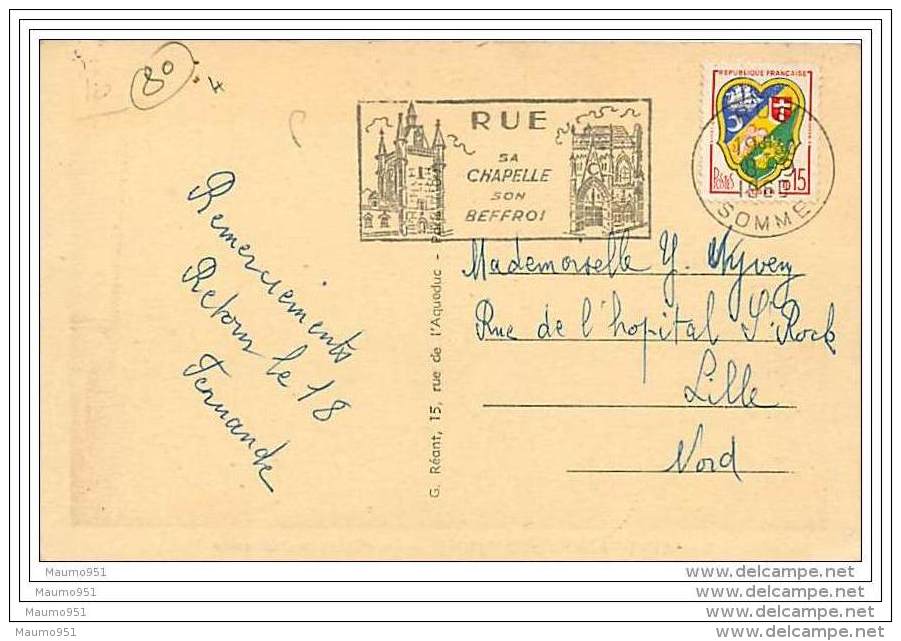 80
RUE
SA
CHAPELLE
SON
BEFFROI
RÉPUBLIQUE FRANÇAISE
POSTES
15
SOMME
Remerciements
Retour le 18
Fernande
G. Réant, 15, rue de l'Aqueduc -
Mademoiselle Y.
Rue de l'hopital St Rock
Lille
Nord
Maumo951
www.delcampe.net
Maumo951
www.delcampe.net
Maumo951
www.delcampe.net
Maumo951
www.delcampe.net